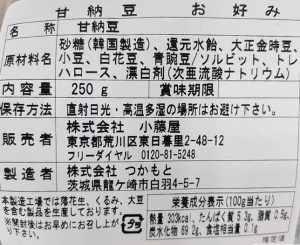 甘納豆 お好み
名称 甘納豆
原材料名 砂糖(韓国製造)、還元水飴、大正金時豆、
小豆、白花豆、青豌豆/ソルビット、トレ
ハロース、漂白剤(次亜硫酸ナトリウム)
内容量 250g 賞味期限
保存方法 直射日光・高温多湿の場所はお避け下さい。
販売者 株式会社 小藤屋
東京都荒川区東日暮里2-48-12
フリーダイヤル 0120-81-5248
製造者 株式会社 つかもと
茨城県龍ケ崎市白羽4-5-7
本製造工場では落花生、くるみ、大豆
を含む製品を生産しております。
※開封後はお早めにお召し上がり
下さい。
栄養成分表示(100g当たり)
熱量 303kcal、たんぱく質 5.3g、脂質 0.5g、
炭水化物 69.2g、食塩相当量 0.1g
推定値